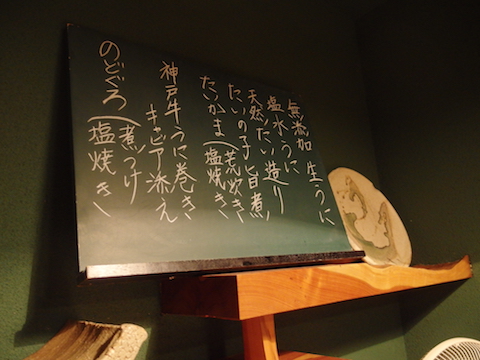 無添加 生うに
塩水うに
天然だい造り
たいの子旨煮
たいかま(荒炊き
塩焼き
神戸牛うに巻き
キャビア添え
のどぐろ(煮つけ
塩焼き